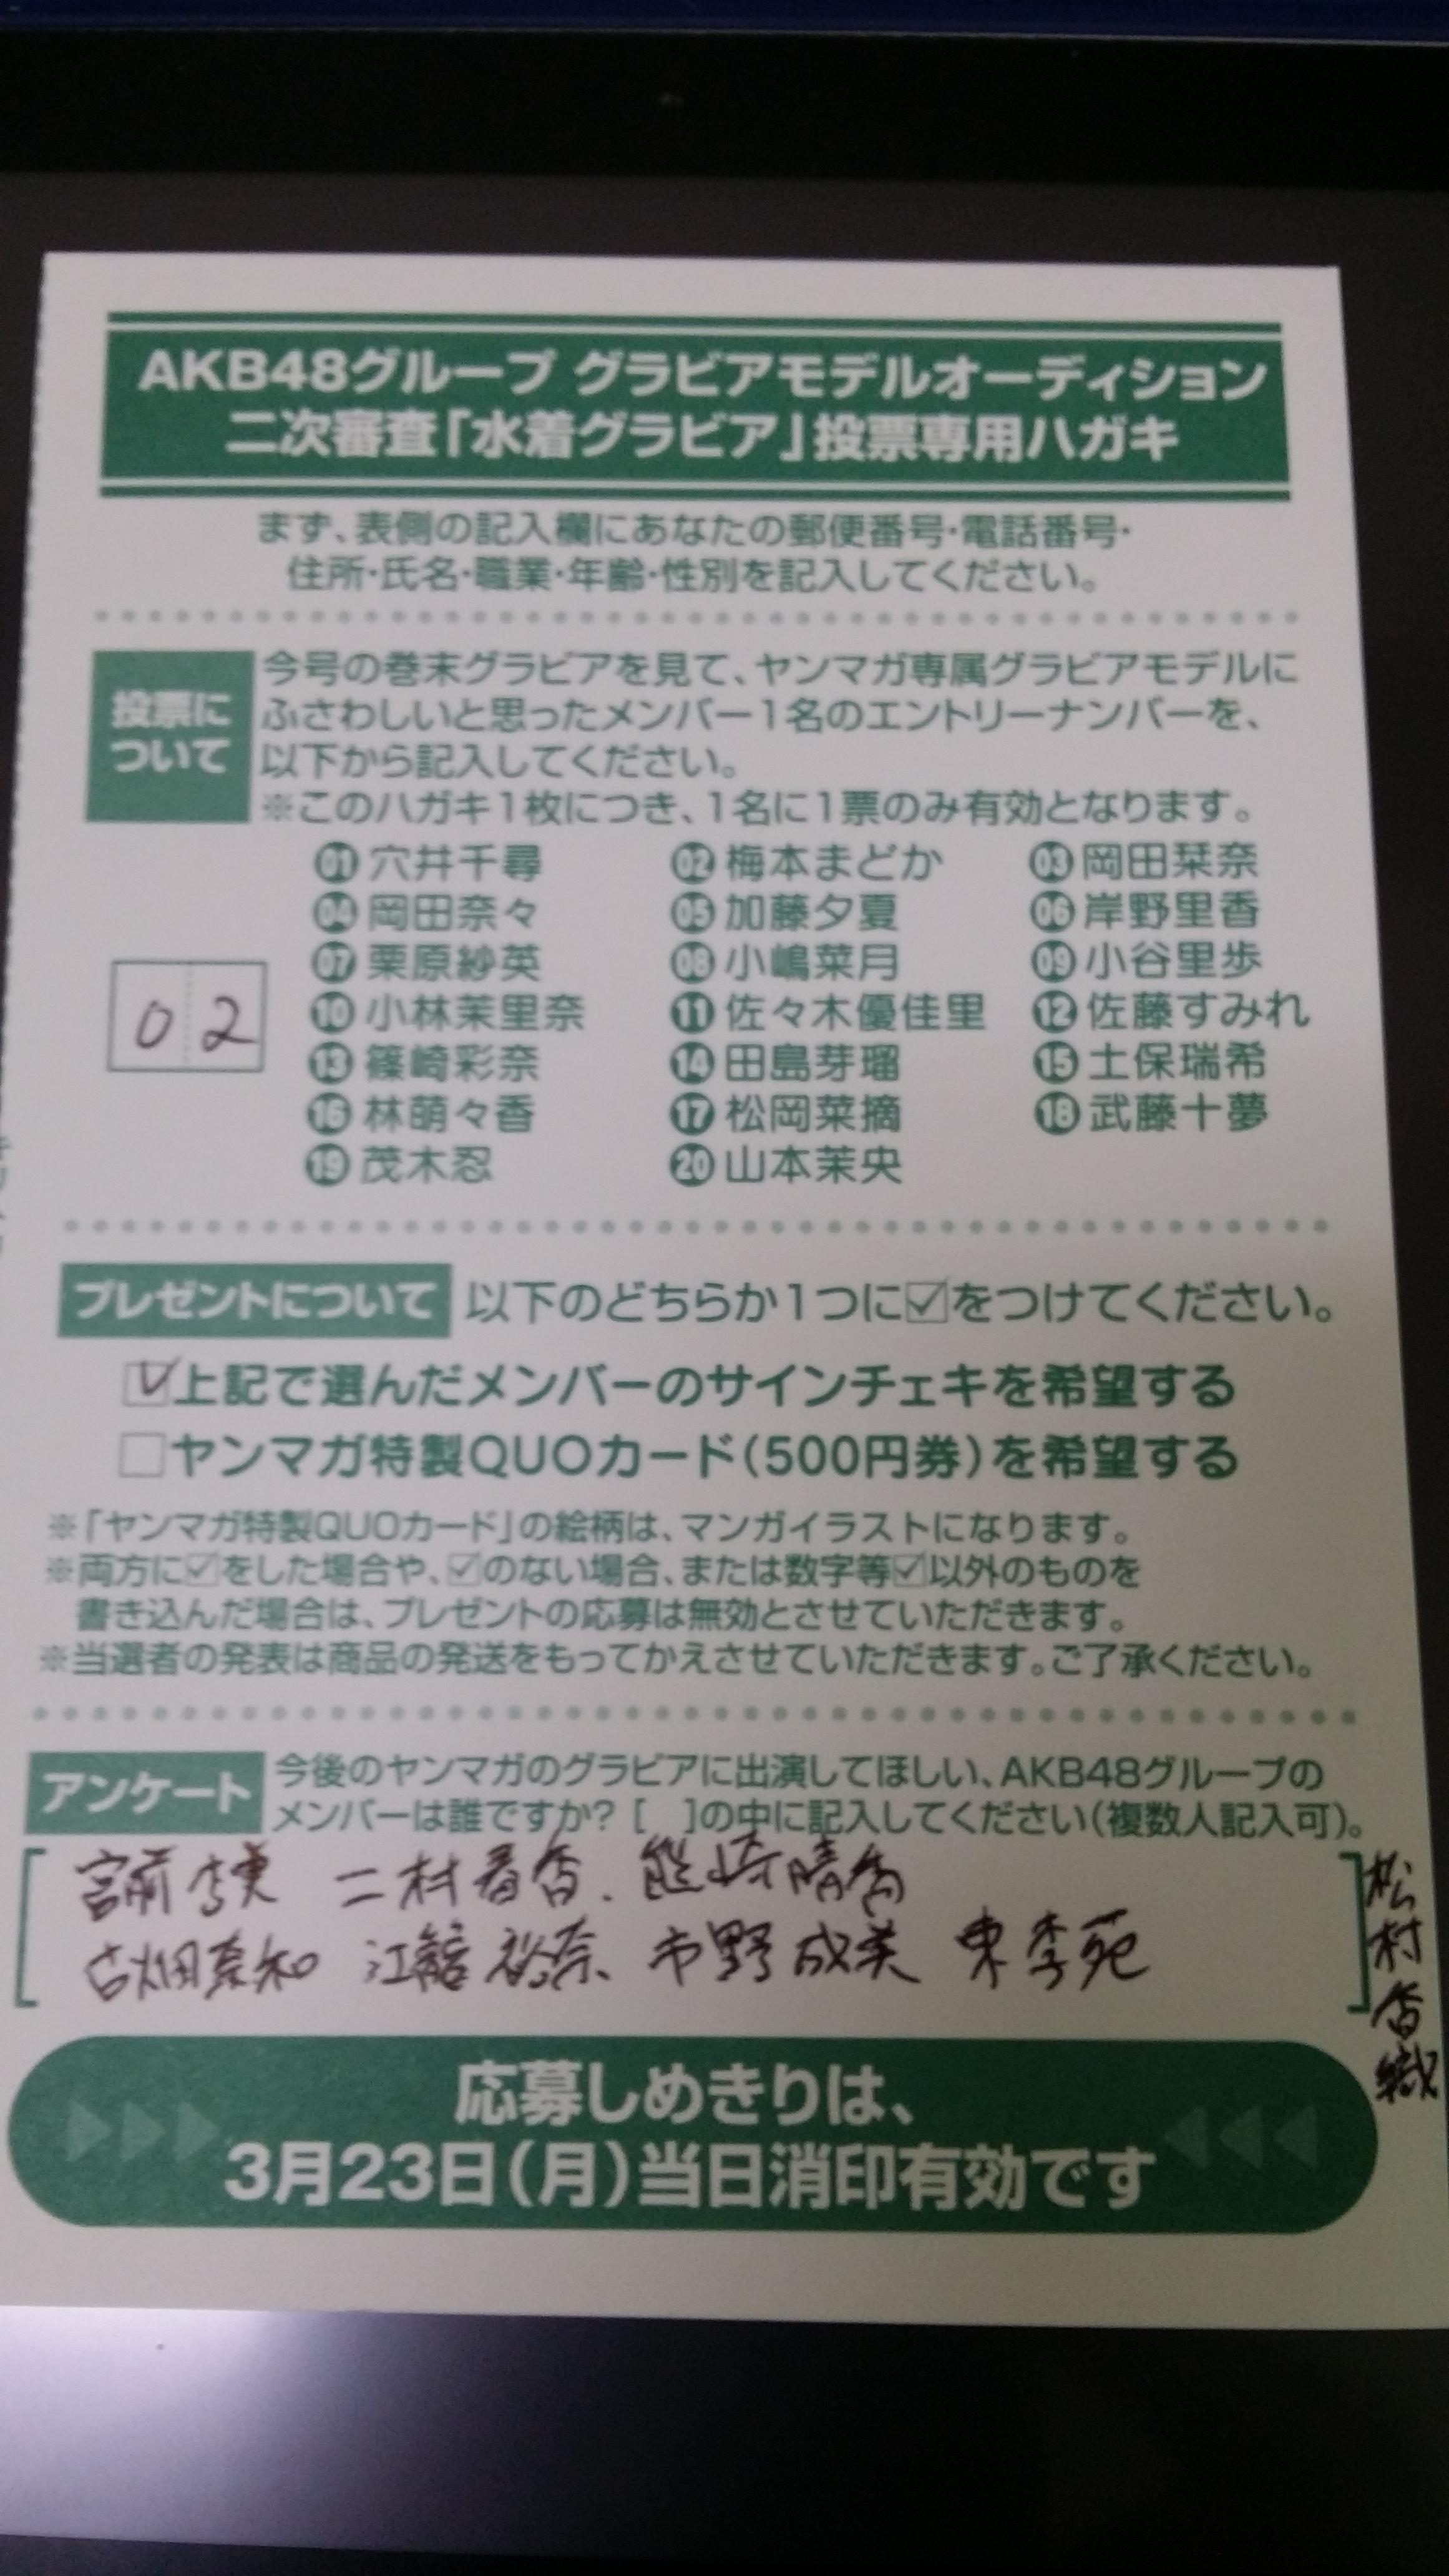 AKB48グループ グラビアモデルオーディション
二次審査「水着グラビア」投票専用ハガキ
まず、表側の記入欄にあなたの郵便番号・電話番号・
住所・氏名・職業・年齢・性別を記入してください。
投票に
ついて
今号の巻末グラビアを見て、ヤンマガ専属グラビアモデルに
ふさわしいと思ったメンバー1名のエントリーナンバーを、
以下から記入してください。
※このハガキ1枚につき、1名に1票のみ有効となります。
01 穴井千尋 02 梅本まどか 03 岡田栞奈
04 岡田奈々 05 加藤夕夏 06 岸野里香
07 栗原紗英 08 小嶋菜月 09 小谷里歩
10 小林茉里奈 11 佐々木優佳里 12 佐藤すみれ
13 篠崎彩奈 14 田島芽瑠 15 土保瑞希
16 林萌々香 17 松岡菜摘 18 武藤十夢
19 茂木忍 20 山本茉央
02
プレゼントについて 以下のどちらか1つに☑をつけてください。
☑上記で選んだメンバーのサインチェキを希望する
□ヤンマガ特製QUOカード(500円券)を希望する
※「ヤンマガ特製QUOカード」の絵柄は、マンガイラストになります。
※両方に☑をした場合や、☑のない場合、または数字等☑以外のものを
書き込んだ場合は、プレゼントの応募は無効とさせていただきます。
※当選者の発表は商品の発送をもってかえさせていただきます。ご了承ください。
アンケート
今後のヤンマガのグラビアに出演してほしい、AKB48グループの
メンバーは誰ですか? [ ]の中に記入してください(複数人記入可)。
宮前杏実 二村春香、熊崎晴香
古畑奈和 江籠裕奈、市野成美 東李苑
松村香織
応募しめきりは、
3月23日(月)当日消印有効です